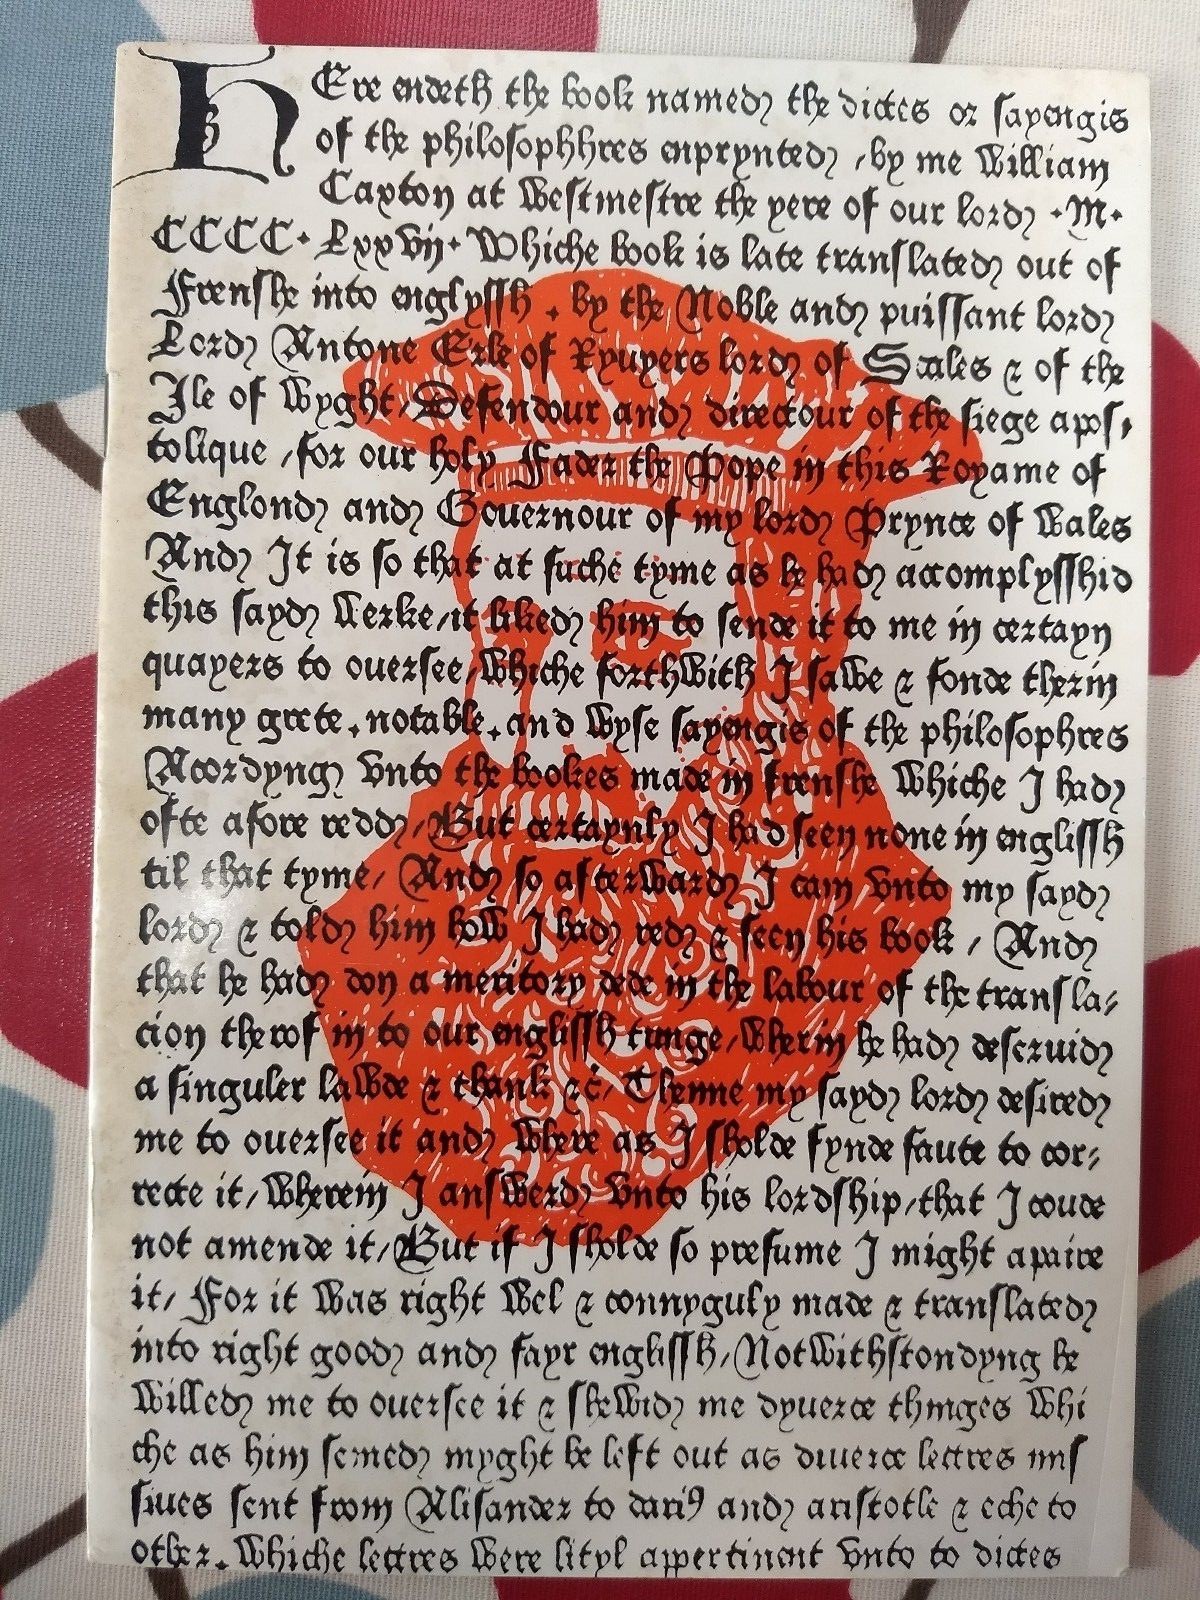 HEre endeth the book named the dictes or sayengis
of the philosophhres enprynted, by me William
Caxton at Westmestre the yere of our lord ·M·
CCCC·LxxVij· Whiche book is late translated out of
Frenshe into englyssh. by the Noble and puissant lord
Lord Antone Erle of Ryuyers lord of Scales & of the
Ile of Wyght, Defendour and directour of the siege apos,
tolique, for our holy Fader the Pope in this Royame of
Englond and Gouernour of my lord Prynce of Wales
And It is so that at suche tyme as he had accomplysshid
this sayd Werke, it liked him to sende it to me in certayn
quayers to ouersee, Whiche forthWith I saWe & fonde therin
many grete. notable. and Wyse sayengis of the philosophres
Acordyng Vnto the bookes made in frenshe Whiche I had
ofte afore redd, But certaynly I had seen none in englissh
til that tyme, And so afterWard I cam Vnto my sayd
lord & told him hoW I had red & seen his book, And
that he had don a meritory dede in the labour of the transla-
cion therof in to our englissh tunge, Wherin he had deseruid
a singuler laWde & thank &c, Thenne my sayd lord desired
me to ouersee it and Where as I sholde fynde faute to cor-
recte it, Wherein I ansWerd Vnto his lordship, that I coude
not amende it, But if I sholde so presume I might apaire
it, For it Was right Wel & connyngly made & translated
into right good and fayr englissh, NotWithstondyng he
Willed me to ouersee it & sheWid me dyuerce thinges Whi
che as him semed myght be left out as diuerce lettres mis
siues sent from Alisander to darius and aristotle & eche to
other. Whiche lettres Were lityl appertinent Vnto to dictes